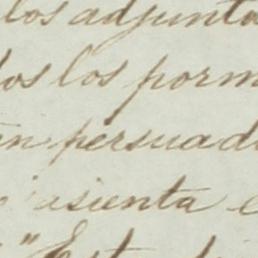 los adjunta
dos los porm
en persuad
asienta e
"Est